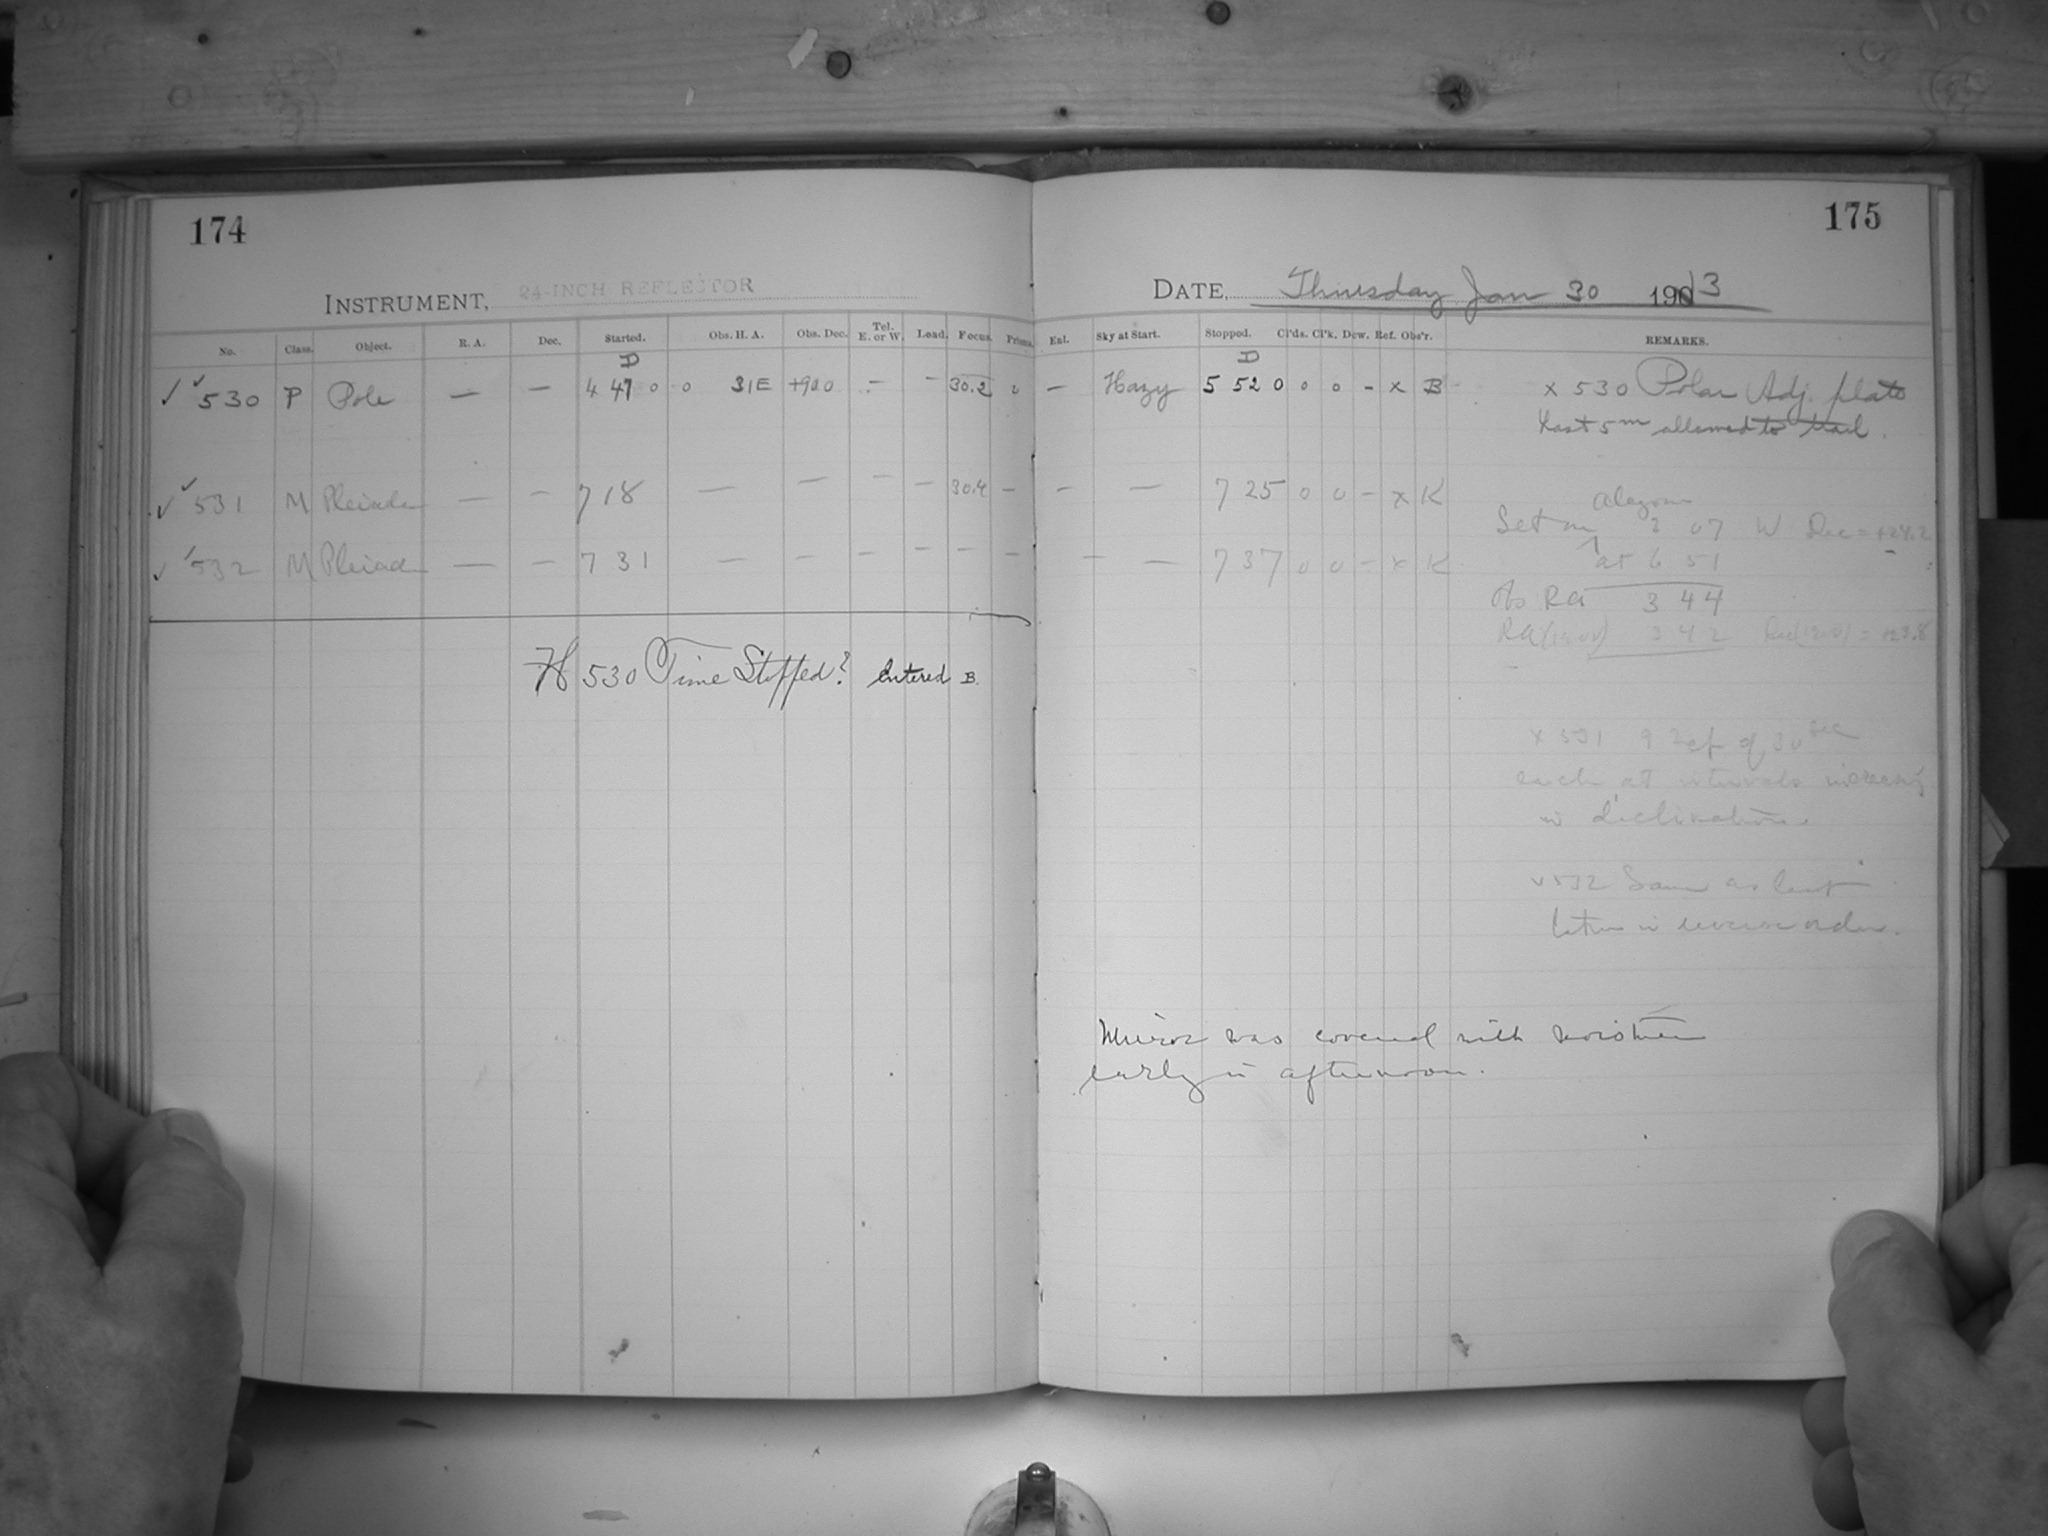 174
INSTRUMENT, 24-INCH REFLECTOR
No. Class. Object. R. A. Dec. Started. Obs. H. A. Obs. Dec. Tel. E. or W. Load. Focus. Prisms.
D
✓ ✓ 530 P Pole — — 4 47 0 0 31E +90 0 — — 30.2 0
✓ ✓ 531 M Pleiades — — 7 18 — — — — 30.4 —
✓ ✓ 532 M Pleiades — — 7 31 — — — — — —
H 530 Time Stopped? Entered B.
175
DATE, Thursday Jan 30 1913
Ext. Sky at Start. Stopped. Cl'ds. Cl'k. Dew. Ref. Obs'r. REMARKS.
D
— Hazy 5 52 0 0 0 - x B x 530 Polar Adj. plate
Last 5m allowed to trail.
— — 7 25 0 0 - x K
Alcyone
Set on 3 07 W Dec = +24.2
— — 7 37 0 0 - x K
at 6 51
Obs RA 3 44
RA (1900) 3 42 Dec (1900) = +23.8
x 531 9 exp of 30 sec
each at intervals increasing
in declination
x 532 Same as last
but in reverse order.
Mirror was covered with moisture
early in afternoon.